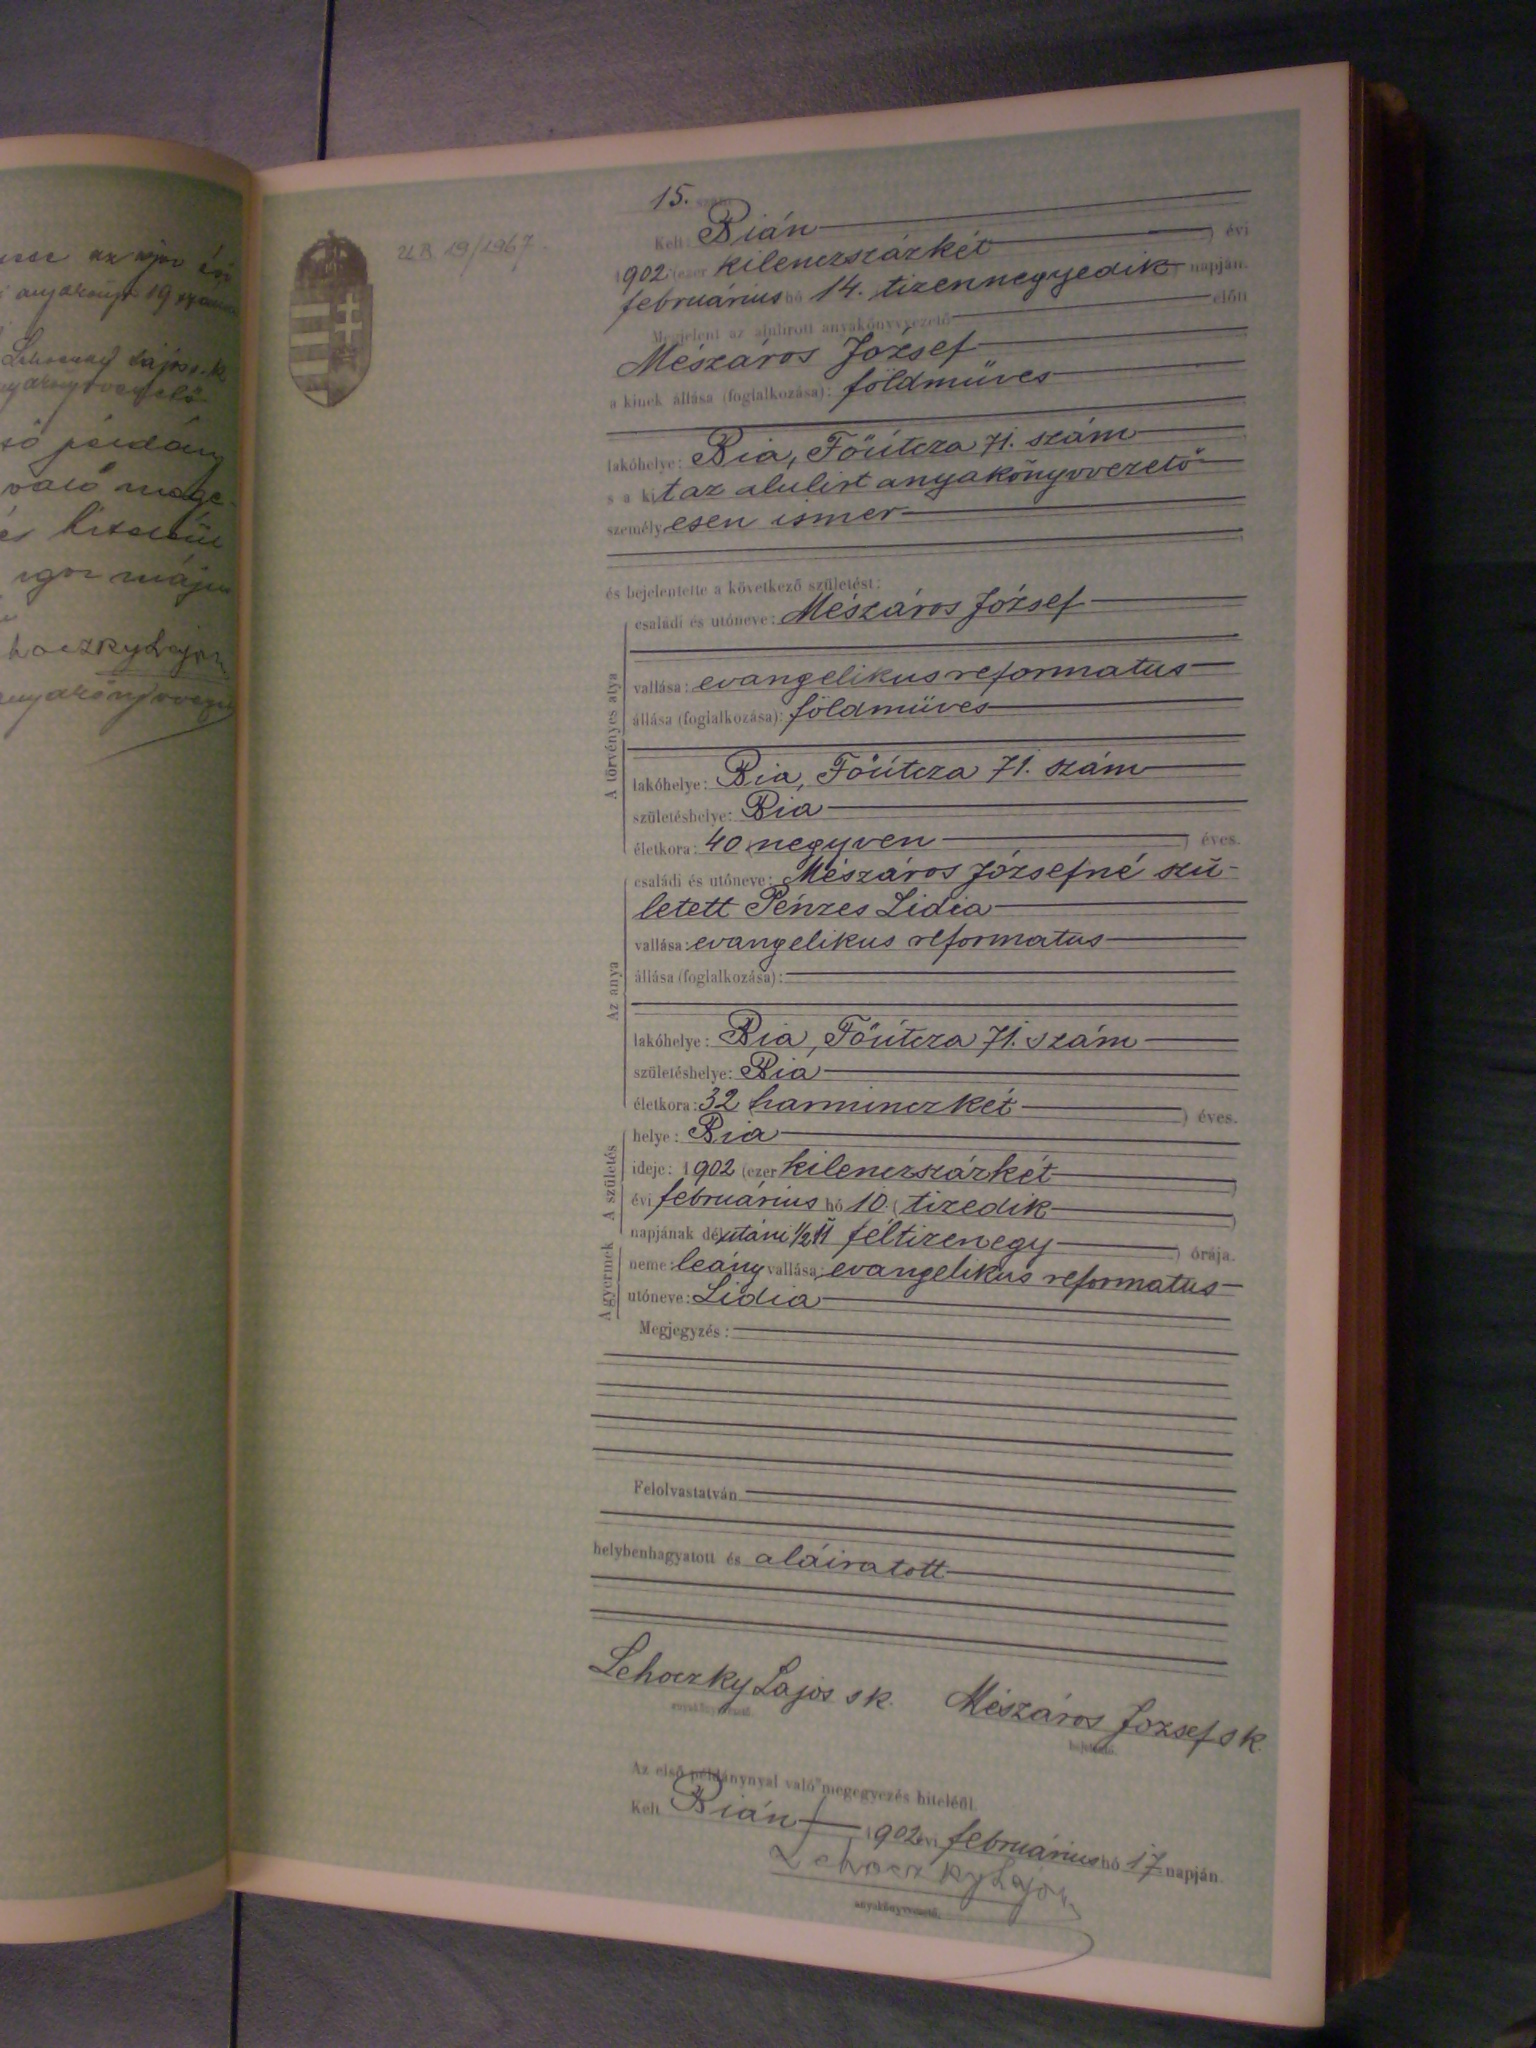 anyakönyv 19 szám
Lehoczky Lajos s.k.
anyakönyvvezető
só példány
való mege-
és hiteléül
hoczky Lajos
U.B. 19/1967.
15. szám
Kelt: Bián
1902 (ezer kilenczszázkét) évi
februárius hó 14. tizennegyedik) napján.
Megjelent az alulirott anyakönyvvezető előtt
Mészáros József
a kinek állása (foglalkozása): földműves
lakóhelye: Bia, Főútcza 71. szám
s a kit az alulirt anyakönyvvezető
személyesen ismer
és bejelentette a következő születést:
A törvényes atya
családi és utóneve: Mészáros József
vallása: evangelikus reformatus
állása (foglalkozása): földműves
lakóhelye: Bia, Főútcza 71. szám
születéshelye: Bia
életkora: 40 (negyven) éves.
Az anya
családi és utóneve: Mészáros Józsefné szü-
letett Pénzes Lidia
vallása: evangelikus reformatus
állása (foglalkozása):
lakóhelye: Bia, Főútcza 71. szám
születéshelye: Bia
életkora: 32 (harminczkét) éves.
A születés
helye: Bia
ideje: 1902 (ezer kilenczszázkét)
évi februárius hó 10. (tizedik)
napjának délutáni ½11 féltizenegy) órája.
A gyermek
neme: leány vallása: evangelikus reformatus
utóneve: Lidia
Megjegyzés:
Felolvastatván
helybenhagyatott és aláiratott
Lehoczky Lajos sk. Mészáros József sk.
anyakönyvvezető. bejelentő.
Az első példánynyal való megegyezés hiteléül.
Kelt Bián 1902 évi februárius hó 17 napján.
Lehoczky Lajos
anyakönyvvezető.